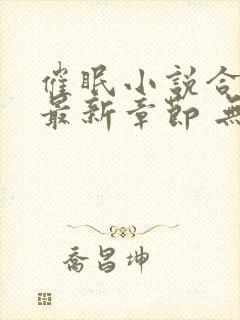 催眠小説合
最新章節 無
喬昌坤